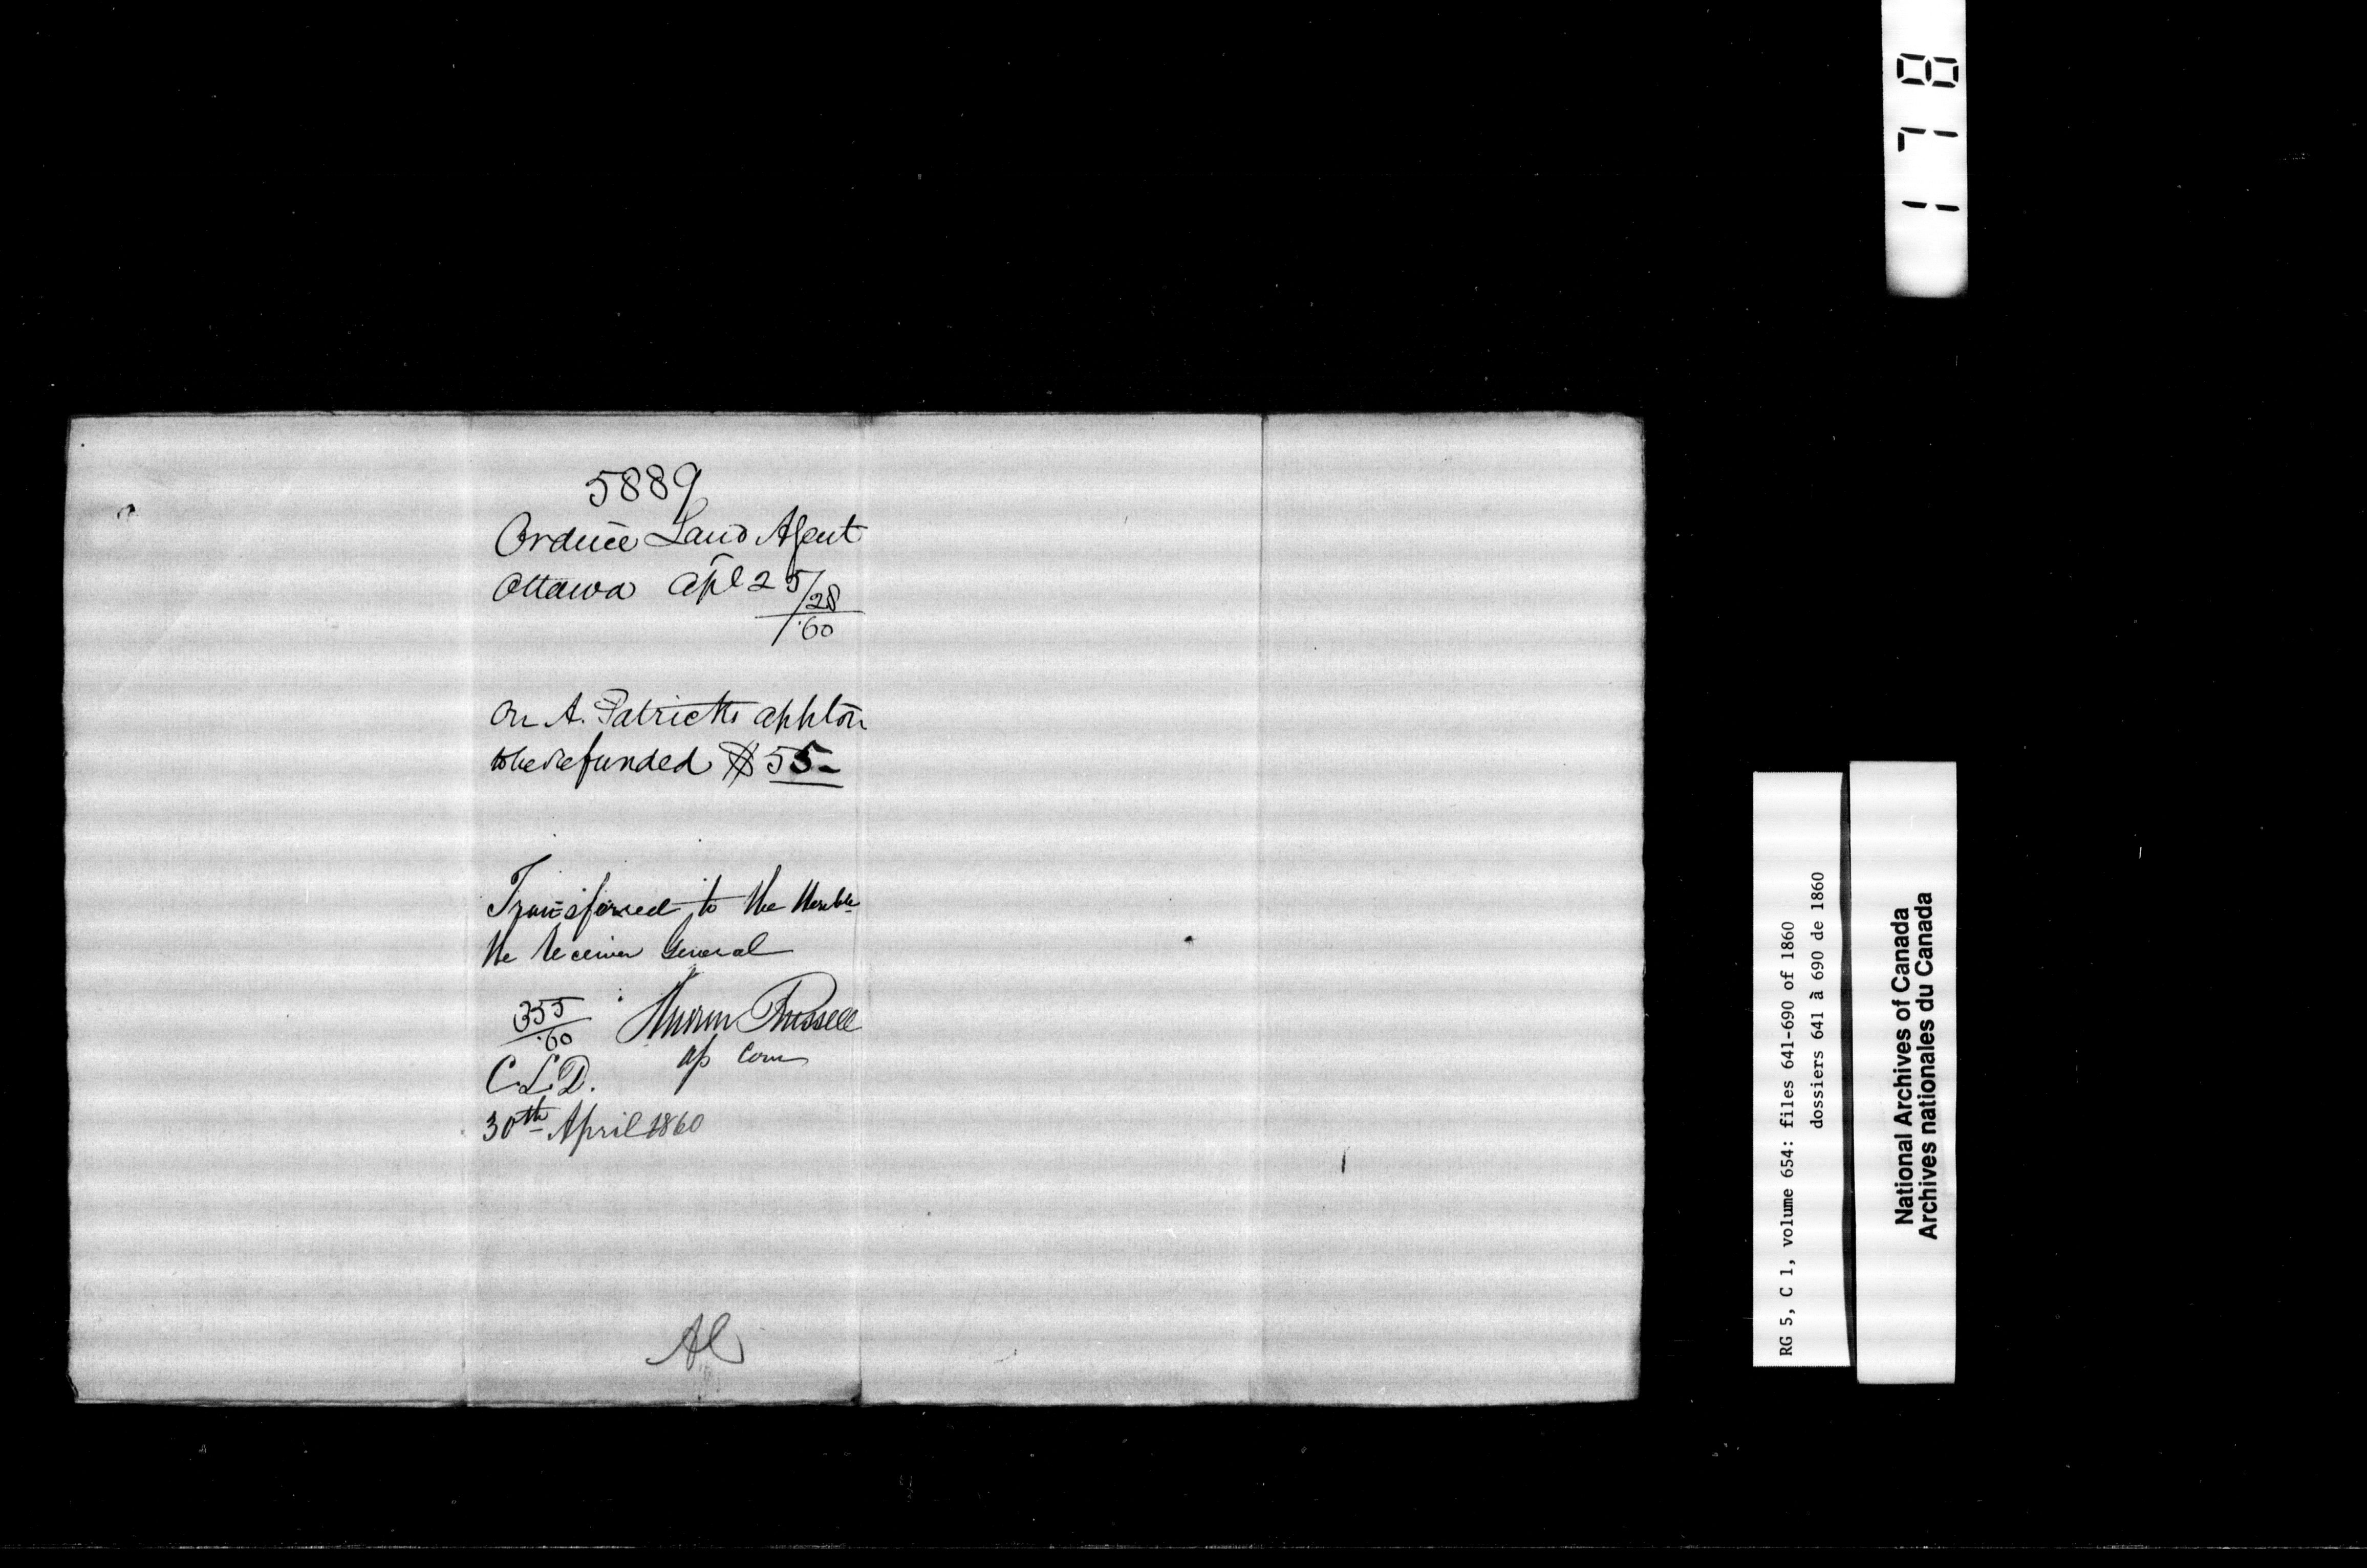 5889
Ordnce Land Agent
Ottawa Apl 25/28
/60
On A. Patricks appltn
to be refunded $55-
Transferred to the Honble
the Receiver General
355
/60
Andrew Russell
C.L.D.
As Com
30th April 1860
Al
178
RG 5, C 1, volume 654: files 641-690 of 1860
dossiers 641 à 690 de 1860
National Archives of Canada
Archives nationales du Canada